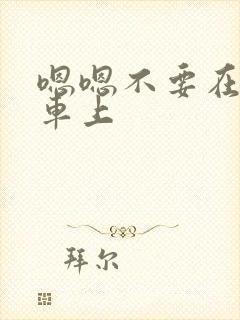 嗯嗯不要在
车上
拜尔